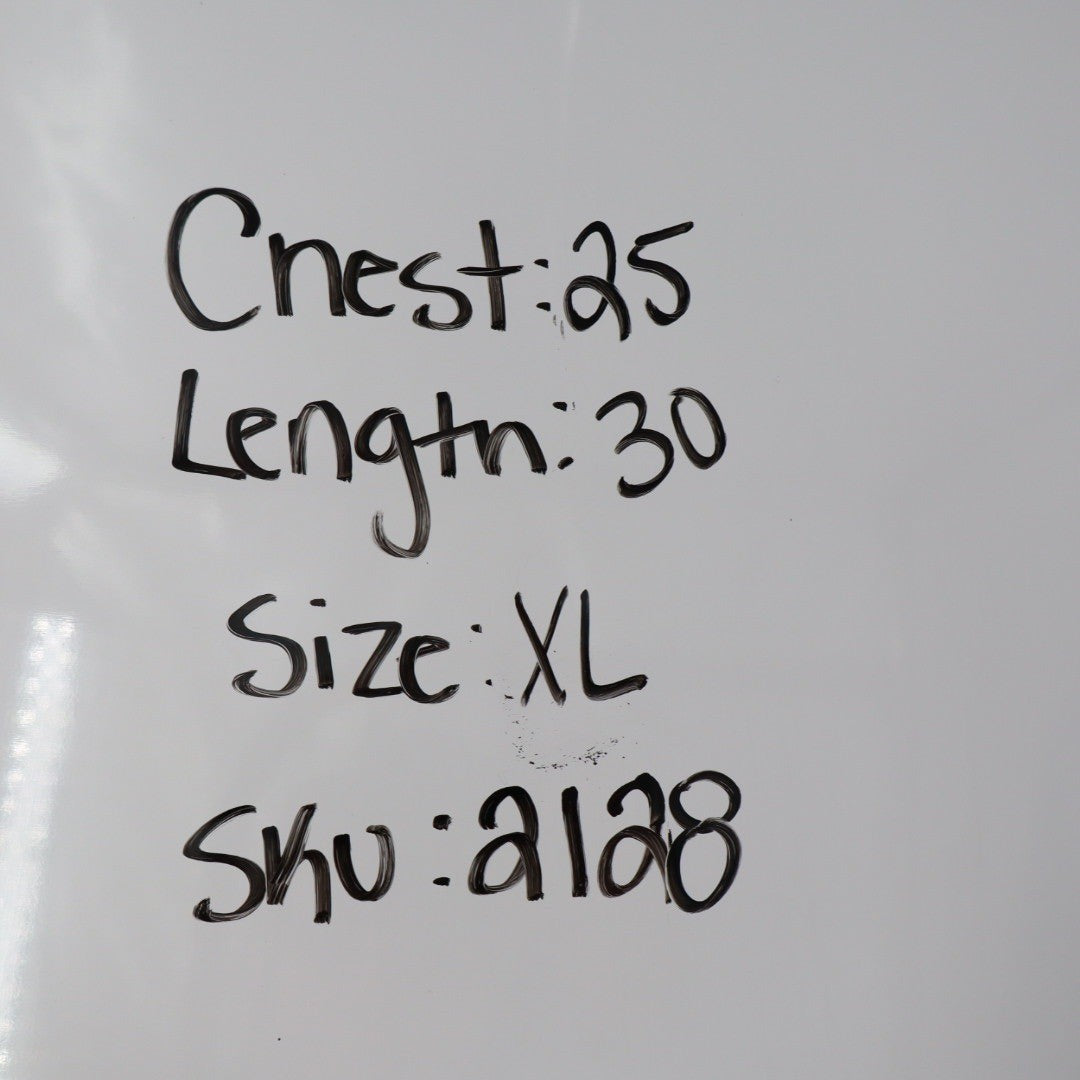 Chest: 25
Length: 30
Size: XL
Sku: 2128